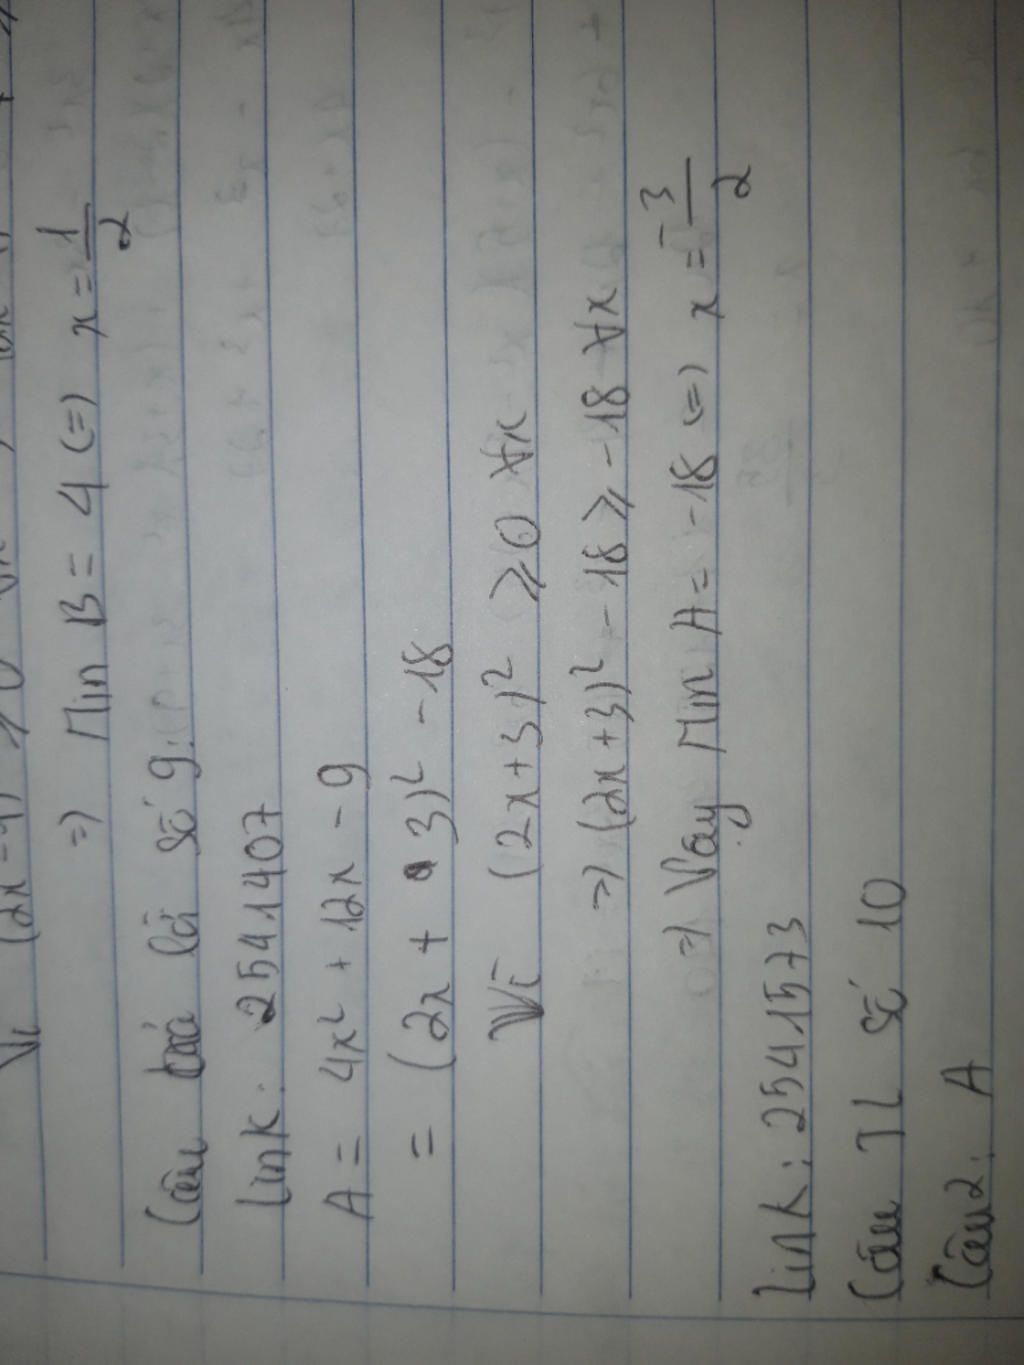 Vì (2x-1)² ≥ 0
=> Min B = 4 <=> x = 1/2
Câu trả lời số 9:
link: 2541407
A = 4x² + 12x - 9
= (2x + 3)² - 18
Vì (2x+3)² ≥ 0 ∀x
=> (2x+3)² - 18 ≥ -18 ∀x
=> Vậy Min A = -18 <=> x = -3/2
link: 2541573
Câu TL số 10
Câu 2: A